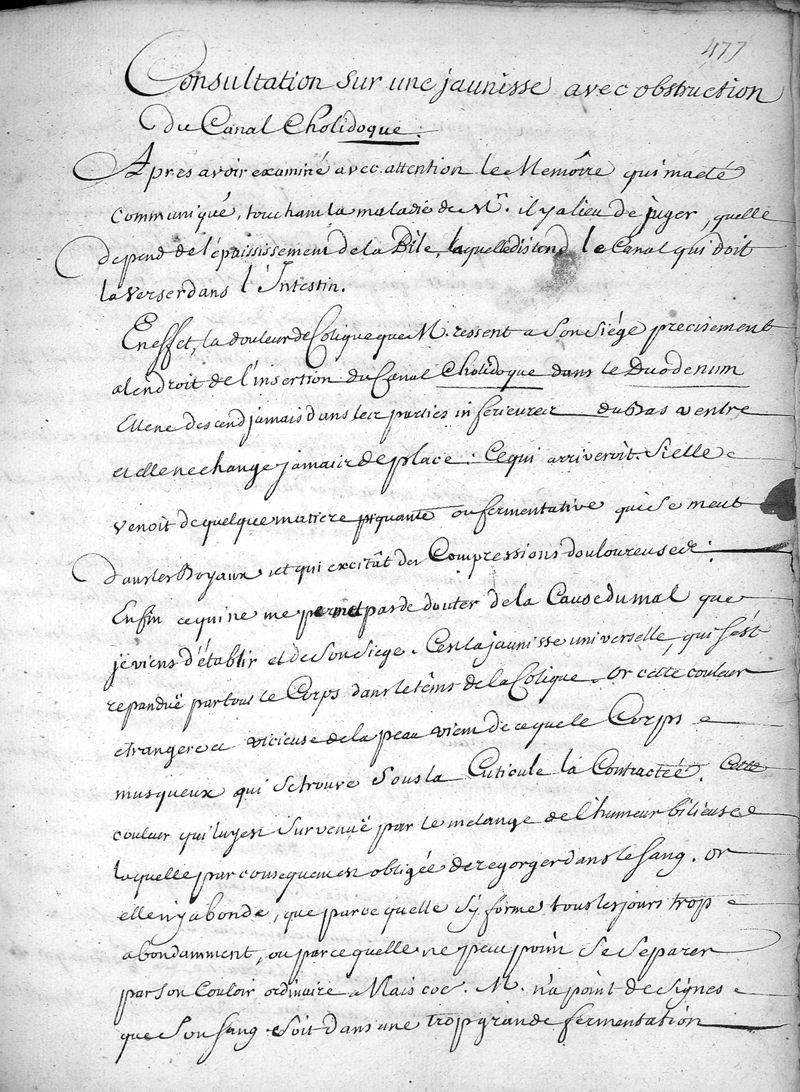 477
Consultation sur une jaunisse avec obstruction
du Canal Cholidoque :
Apres avoir examiné avec attention le Memoire qui ma eté
communiqué, touchant la maladie de Mr. il y a lieu de juger, quelle
depend de l'épaississement de la Bile, laquelle distend le Canal qui doit
la verser dans l'Intestin.
En effet, la douleur de Colique que M. ressent a son siége precisement
a lendroit de l'insertion du Canal Cholidoque dans le Duodenum
Elle ne descend jamais dans les parties inferieures du Bas ventre
et elle ne change jamais de place : Ce qui arriveroit si elle
venoit de quelque matiere piquante ou fermentative qui se meut
dans les Boyaux, et qui excitât des Compressions douloureuses :
Enfin ce qui ne me permet pas de douter de la Cause du mal que
je viens d'établir et de son siege. C'est la jaunisse universelle, qui s'est
repanduë par tout le Corps dans le têms de la Colique. Or cette couleur
etrangere et vicieuse de la peau vient de ce que le Corps
musqueux qui se trouve sous la Cuticule la Contractée. Cette
couleur qui luy est survenuë par le melange de l'humeur bilieuse
laquelle par consequent est obligée de regorger dans le sang. Or
elle n'y abonde, que parce quelle s'y forme tous les jours trop
abondamment, ou parce quelle ne peau poin se separer
par son Couloir ordinaire. Mais M. n'a point de signes
que son sang soit dans une trop grande fermentation